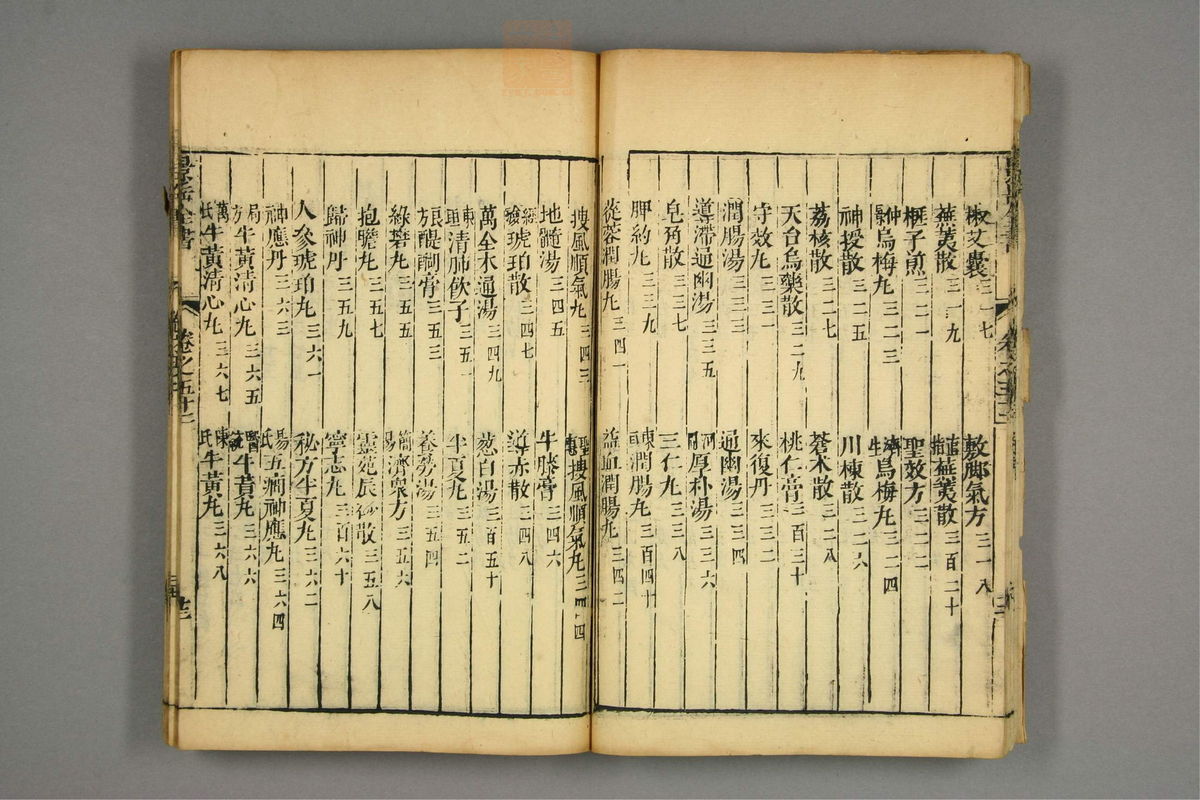 椒艾囊三一七 敷腳氣方三一八
蕪荑散三一九 蕪荑散三百二十
榧子煎三二一 聖效方三二二
烏梅丸三二三 濟生烏梅丸三二四
神授散三二五 川楝散三二六
荔核散三二七 蒼术散三二八
天台烏藥散三二九 桃仁膏三百三十
守效丸三三一 來復丹三三二
潤腸湯三三三 通幽湯三三四
導滯通幽湯三三五 河間厚朴湯三三六
皂角散三三七 三仁丸三三八
脾約丸三三九 東垣潤腸丸三百四十
蓯蓉潤腸丸三四一 益血潤腸丸三四二
搜風順氣丸三四三 聖惠搜風順氣丸三四四
地髓湯三四五 牛膝膏三四六
琥珀散三四七 導赤散三四八
萬全木通湯三四九 葱白湯三百五十
東垣清肺飲子三五一 半夏丸三五二
醍醐膏三五三 養勞湯三五四
綠礬丸三五五 簡易濟衆方三五六
抱膽丸三五七 靈苑辰砂散三五八
歸神丹三五九 寧志丸三百六十
人參琥珀丸三六一 秘方半夏丸三六二
神應丹三六三 楊氏五癇神應丸三六四
局方牛黃清心丸三六五 牛黃丸三六六
萬氏牛黃清心丸三六七 陳氏牛黃丸三六八
景岳全書 卷之五十三